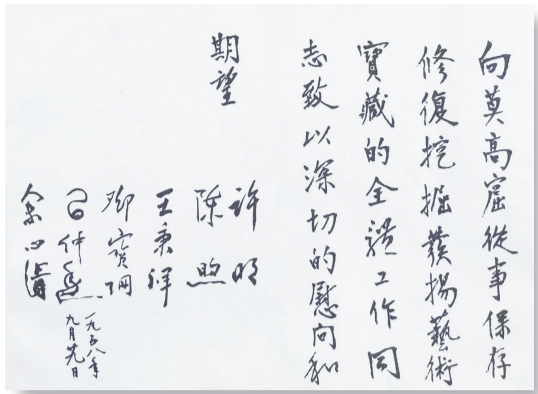 向莫高窟從事保存
修復挖掘發揚藝術
寶藏的全體工作同
志致以深切的慰问和
期望
许明
陳煦
王秉祥
鄧寶珊
仲
余心清
一九五八年
九月